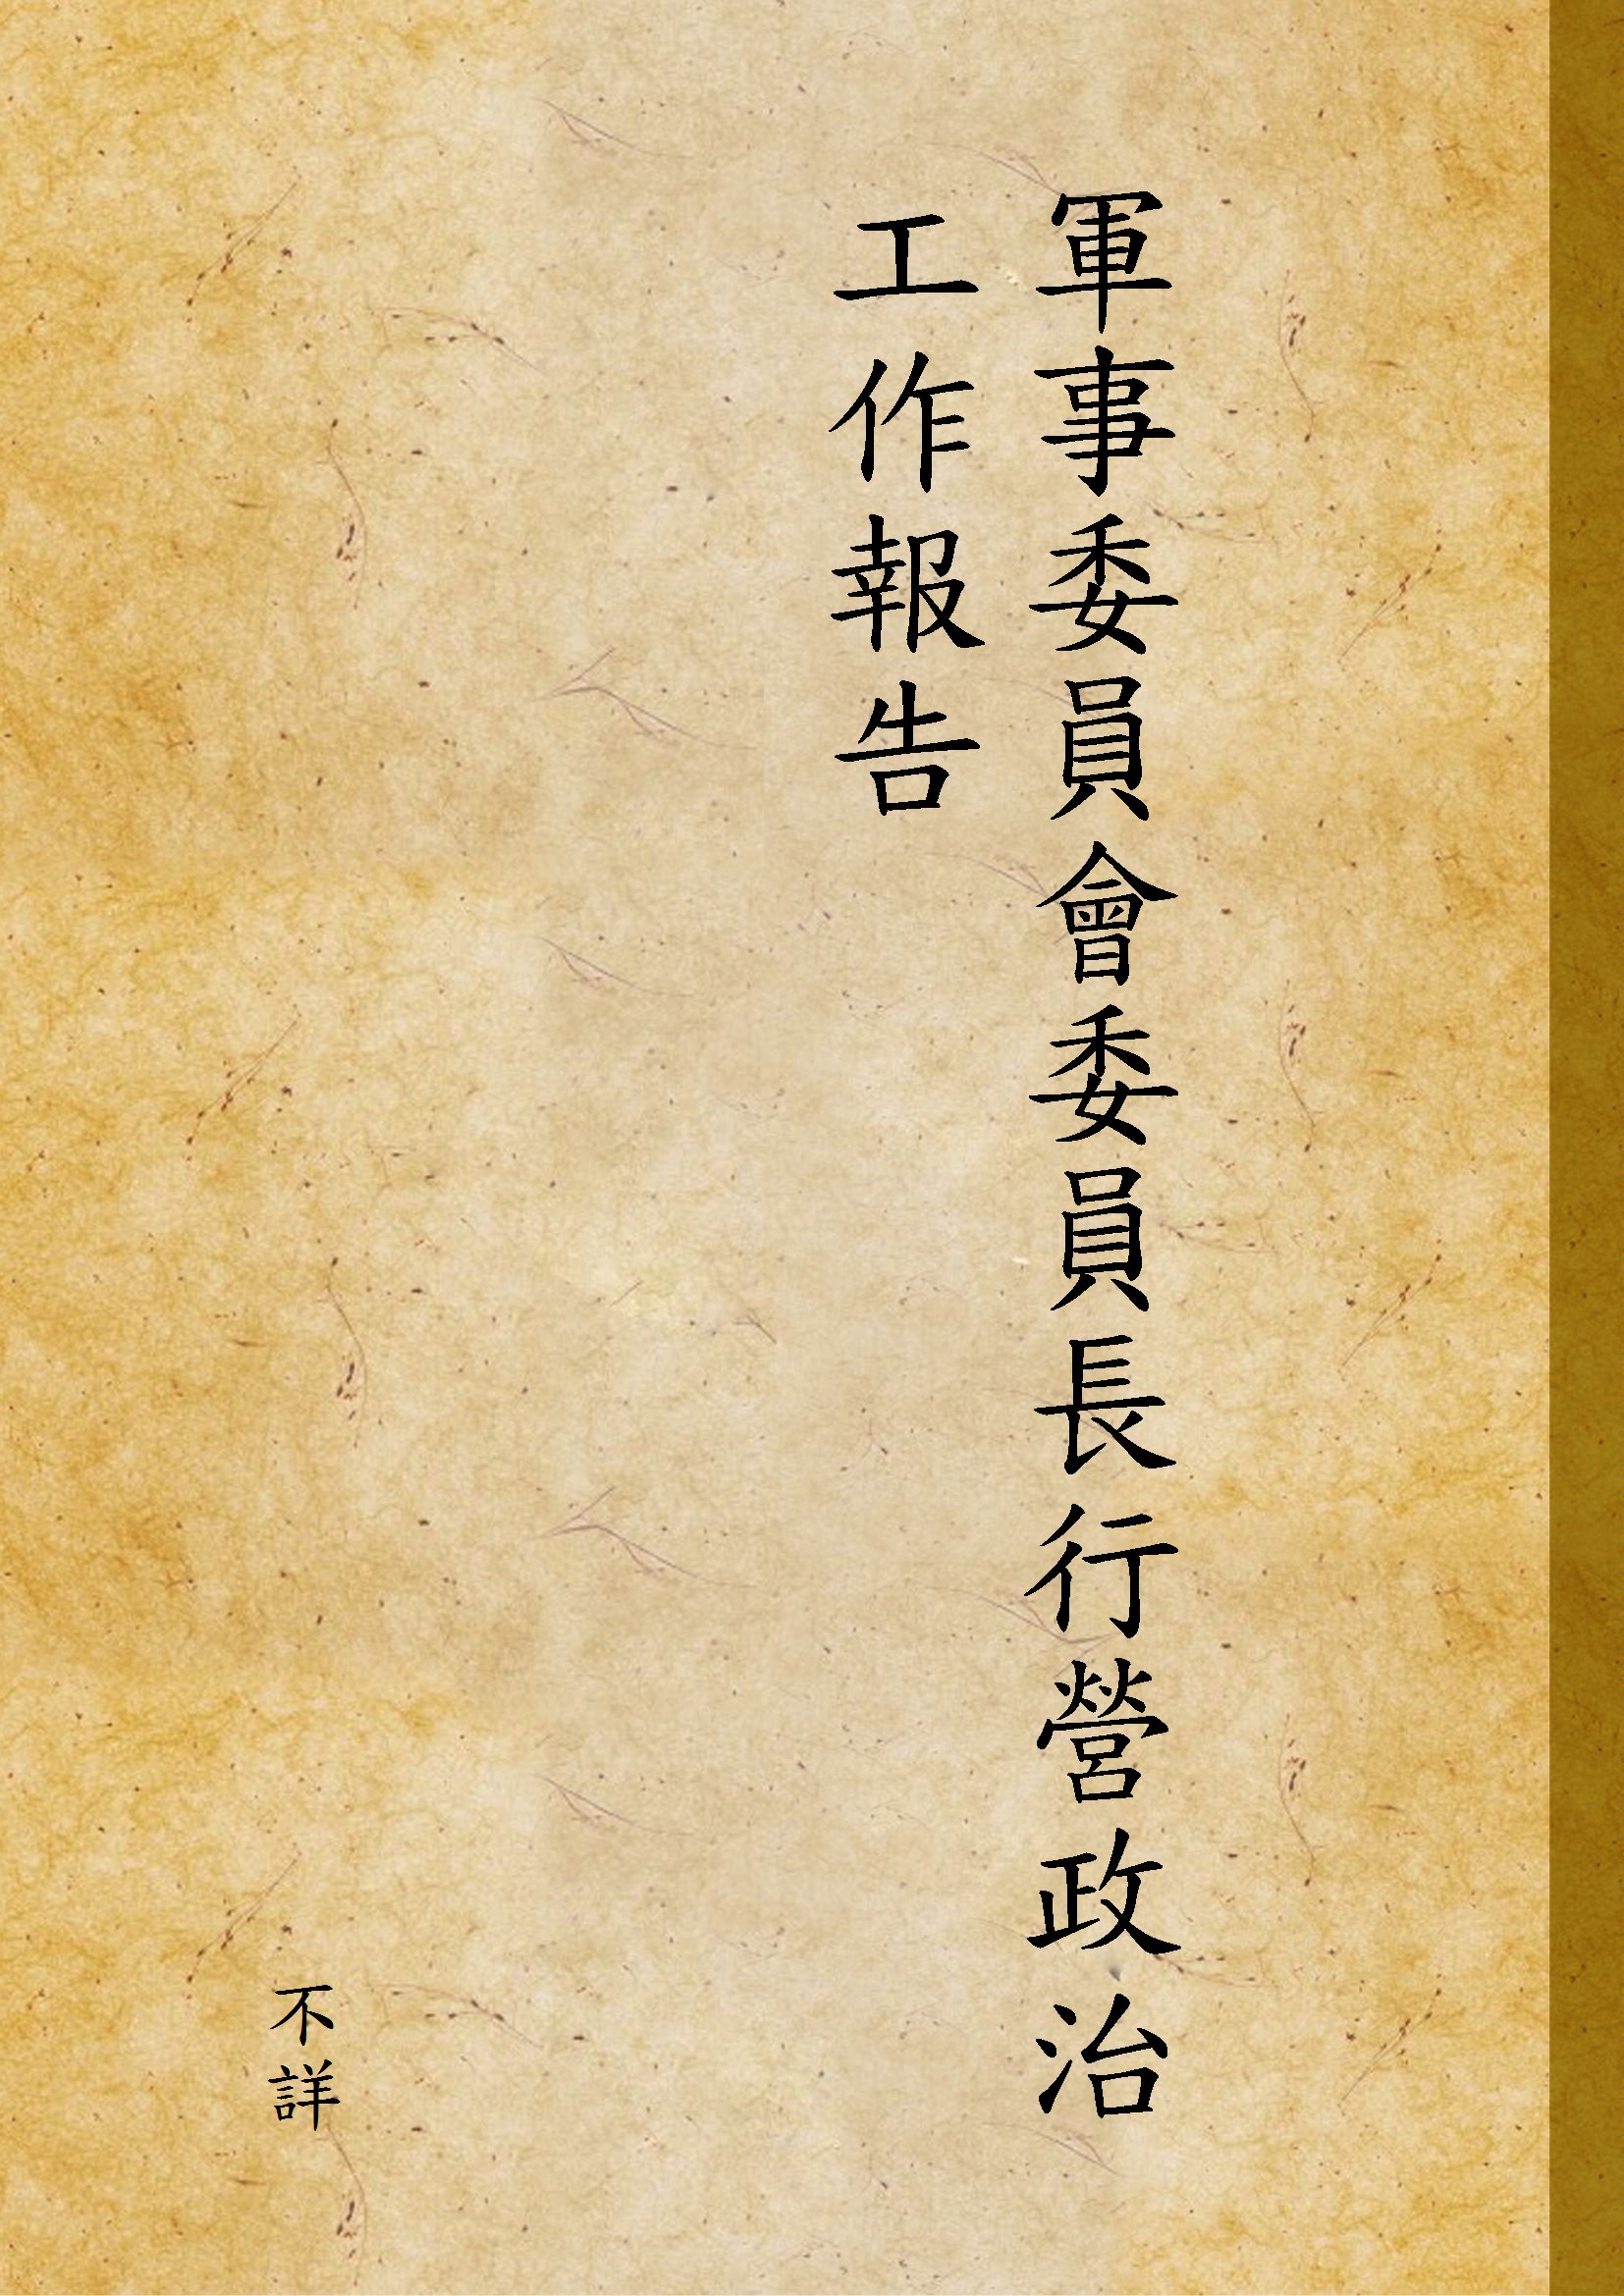 軍事委員會委員長行營政治
工作報告
不詳